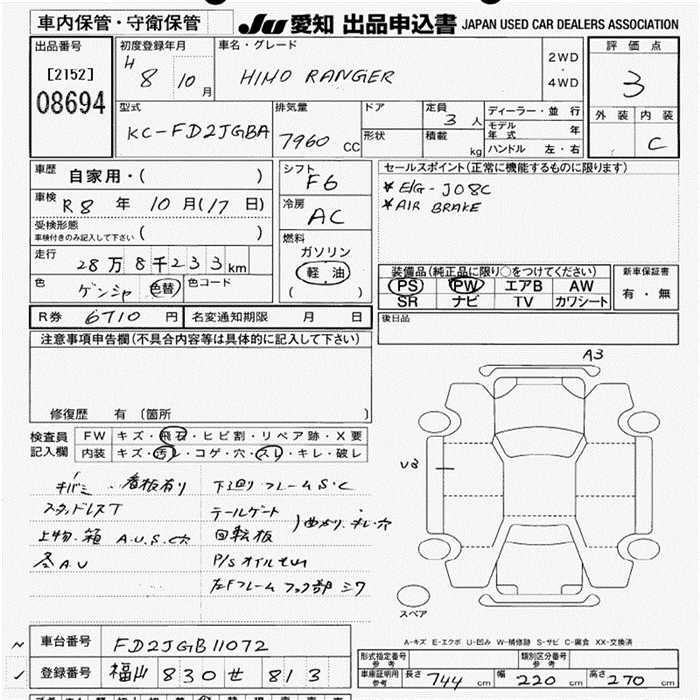 車内保管・守衛保管 JU 愛知 出品申込書 JAPAN USED CAR DEALERS ASSOCIATION
出品番号
[2152]
08694
初度登録年月
H 8 10 月
車名・グレード
HINO RANGER
2WD
・
4WD
評価点
3
外装 内装
C
型式
KC-FD2JGBA
排気量
7960 CC
ドア
形状
定員
3 人
積載
kg
ディーラー・並行
モデル年式 年
ハンドル 左・右
車歴
自家用・( )
車検
R8 年 10 月(17 日)
受検形態
車検付きのみ記入して下さい ( )
走行
28万8千233km
色
ゲンシャ 色替
色コード
シフト
F6
冷房
AC
燃料
ガソリン
軽油
( )
セールスポイント(正常に機能するものに限ります)
★E/G-J08C
★AIR BRAKE
装備品(純正品に限り○をつけてください)
PS PW エアB AW
SR ナビ TV カワシート
新車保証書
有・無
R券 6710 円 名変通知期限 月 日
後日品
注意事項申告欄(不具合内容等は具体的に記入して下さい)
修復歴 有 〔箇所 〕
検査員記入欄
FW キズ・飛石・ヒビ割・リペア跡・X要
内装 キズ・汚レ・コゲ・穴・スレ・キレ・破レ
A3
U3
看板有り 下廻り・フレームS・C
スタッドレスT テールゲート
上物・箱 A.U.S.C穴 回転板
各AU P/Sオイルモレ
左Fフレーム フック部 シワ
スペア
A-キズ E-エクボ U-凹み W-補修跡 S-サビ C-腐食 XX-交換済
車台番号 FD2JGB11072
登録番号 福山 830 せ 813
形式指定番号 参考
類別区分番号 参考
車庫証明用 参考 長さ 744 cm 幅 220 cm 高さ 270 cm